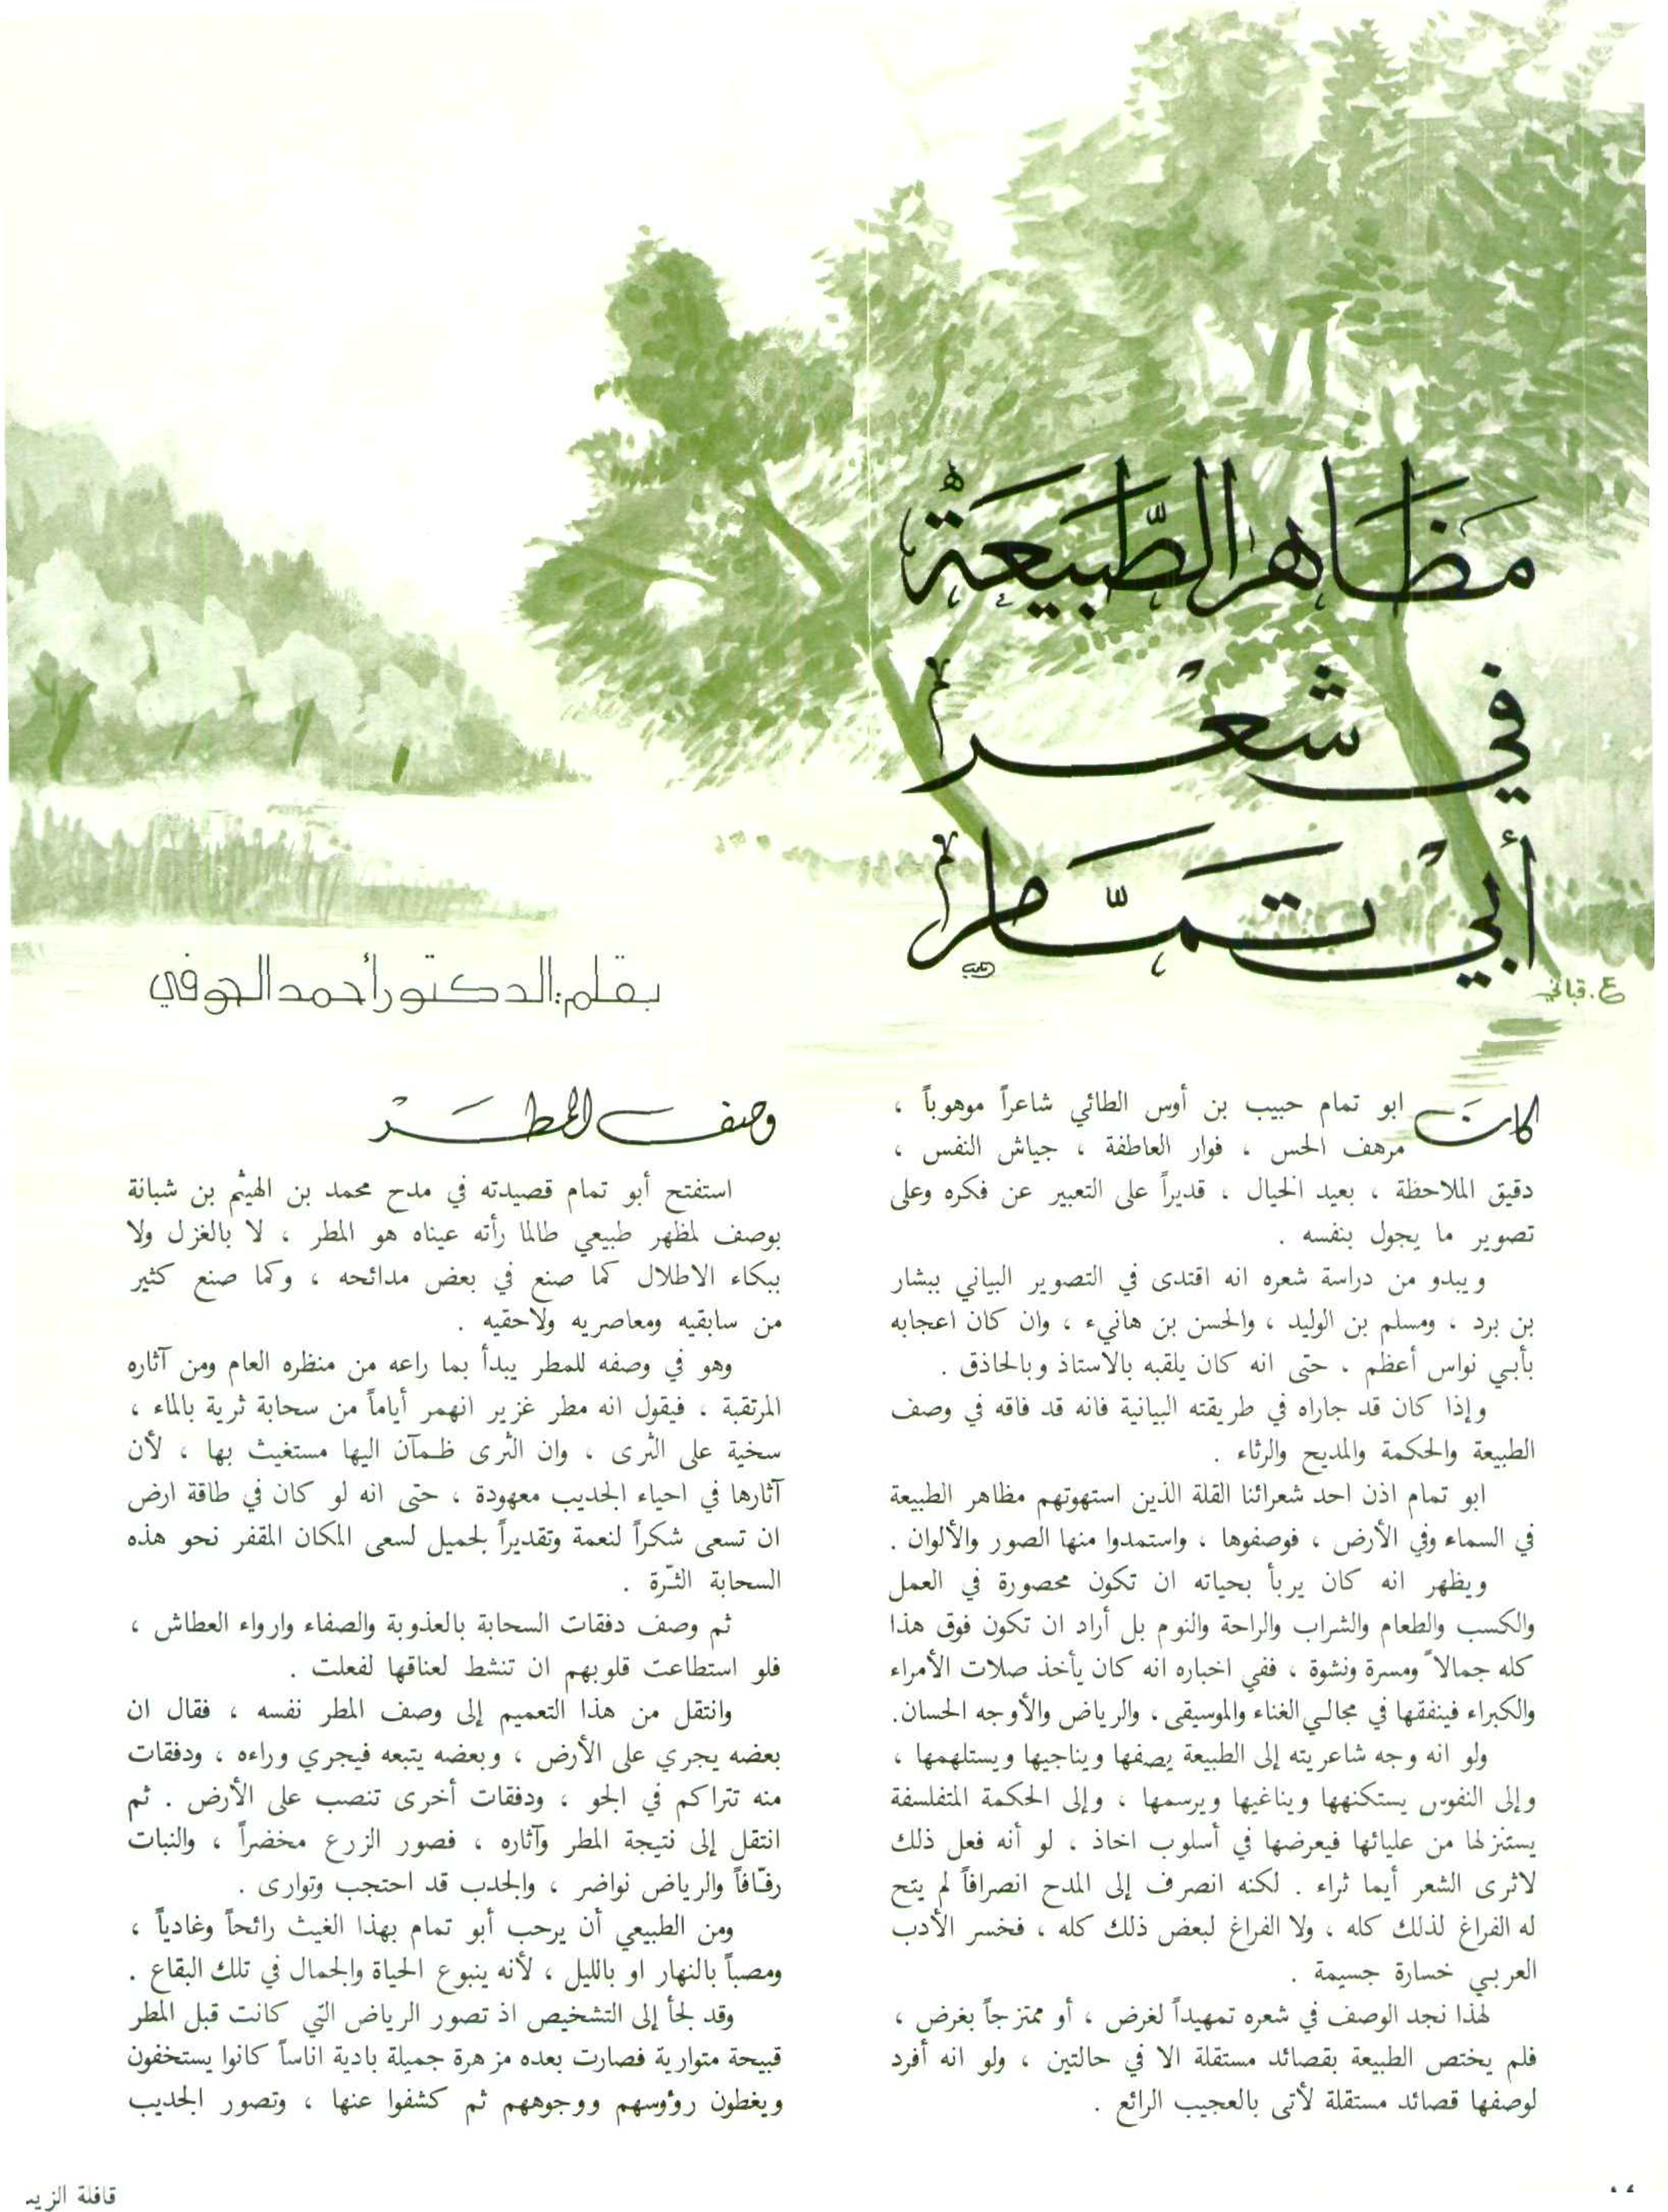 مَظَاهر الطَّبيعَة
في شعْر
أبيْ تمَّام
ع. قباني
بقلم: الدكتور أحمد الحوفي
كان ابو تمام حبيب بن أوس الطائي شاعراً موهوباً ،
مرهف الحس ، فوار العاطفة ، جياش النفس ،
دقيق الملاحظة ، بعيد الخيال ، قديراً على التعبير عن فكره وعلى
تصوير ما يجول بنفسه .
ويبدو من دراسة شعره انه اقتدى في التصوير البياني ببشار
بن برد ، ومسلم بن الوليد ، والحسن بن هانيء ، وان كان اعجابه
بأبي نواس أعظم ، حتى انه كان يلقبه بالاستاذ وبالحاذق .
وإذا كان قد جاراه في طريقته البيانية فانه قد فاقه في وصف
الطبيعة والحكمة والمديح والرثاء .
ابو تمام اذن احد شعرائنا القلة الذين استهوتهم مظاهر الطبيعة
في السماء وفي الأرض ، فوصفوها ، واستمدوا منها الصور والألوان .
ويظهر انه كان يربأ بحياته ان تكون محصورة في العمل
والكسب والطعام والشراب والراحة والنوم بل أراد ان تكون فوق هذا
كله جمالاً ومسرة ونشوة ، ففي اخباره انه كان يأخذ صلات الأمراء
والكبراء فينفقها في مجالي الغناء والموسيقى ، والرياض والأوجه الحسان.
ولو انه وجه شاعريته إلى الطبيعة يصفها ويناجيها ويستلهمها ،
وإلى النفوس يستكنهها ويناغيها ويرسمها ، وإلى الحكمة المتفلسفة
يستنزلها من عليائها فيعرضها في أسلوب اخاذ ، لو أنه فعل ذلك
لاثرى الشعر أيما ثراء . لكنه انصرف إلى المدح انصرافاً لم يتح
له الفراغ لذلك كله ، ولا الفراغ لبعض ذلك كله ، فخسر الأدب
العربي خسارة جسيمة .
لهذا نجد الوصف في شعره تمهيداً لغرض ، أو ممتزجاً بغرض ،
فلم يختص الطبيعة بقصائد مستقلة الا في حالتين ، ولو انه أفرد
لوصفها قصائد مستقلة لأتى بالعجيب الرائع .
وصف المطَرْ
استفتح أبو تمام قصيدته في مدح محمد بن الهيثم بن شبانة
بوصف لمظهر طبيعي طالما رأته عيناه هو المطر ، لا بالغزل ولا
ببكاء الاطلال كما صنع في بعض مدائحه ، وكما صنع كثير
من سابقيه ومعاصريه ولاحقيه .
وهو في وصفه للمطر يبدأ بما راعه من منظره العام ومن آثاره
المرتقبة ، فيقول انه مطر غزير انهمر أياماً من سحابة ثرية بالماء ،
سخية على الثرى ، وان الثرى ظمآن اليها مستغيث بها ، لأن
آثارها في احياء الجديب معهودة ، حتى انه لو كان في طاقة ارض
ان تسعى شكراً لنعمة وتقديراً لجميل لسعى المكان المقفر نحو هذه
السحابة الثرّة .
ثم وصف دفقات السحابة بالعذوبة والصفاء وارواء العطاش ،
فلو استطاعت قلوبهم ان تنشط لعناقها لفعلت .
وانتقل من هذا التعميم إلى وصف المطر نفسه ، فقال ان
بعضه يجري على الأرض ، وبعضه يتبعه فيجري وراءه ، ودفقات
منه تتراكم في الجو ، ودفقات أخرى تنصب على الأرض . ثم
انتقل إلى نتيجة المطر وآثاره ، فصور الزرع مخضراً ، والنبات
رفّافاً والرياض نواضر ، والجدب قد احتجب وتوارى .
ومن الطبيعي أن يرحب أبو تمام بهذا الغيث رائحاً وغادياً ،
ومصباً بالنهار او بالليل ، لأنه ينبوع الحياة والجمال في تلك البقاع .
وقد لجأ إلى التشخيص اذ تصور الرياض التي كانت قبل المطر
قبيحة متوارية فصارت بعده مزهرة جميلة بادية اناساً كانوا يستخفون
ويغطون رؤوسهم ووجوههم ثم كشفوا عنها ، وتصور الجديب
قافلة الزيت